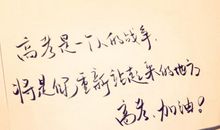 高考是一个人的战争.
将是你重新站起来的地方
高考,加油!